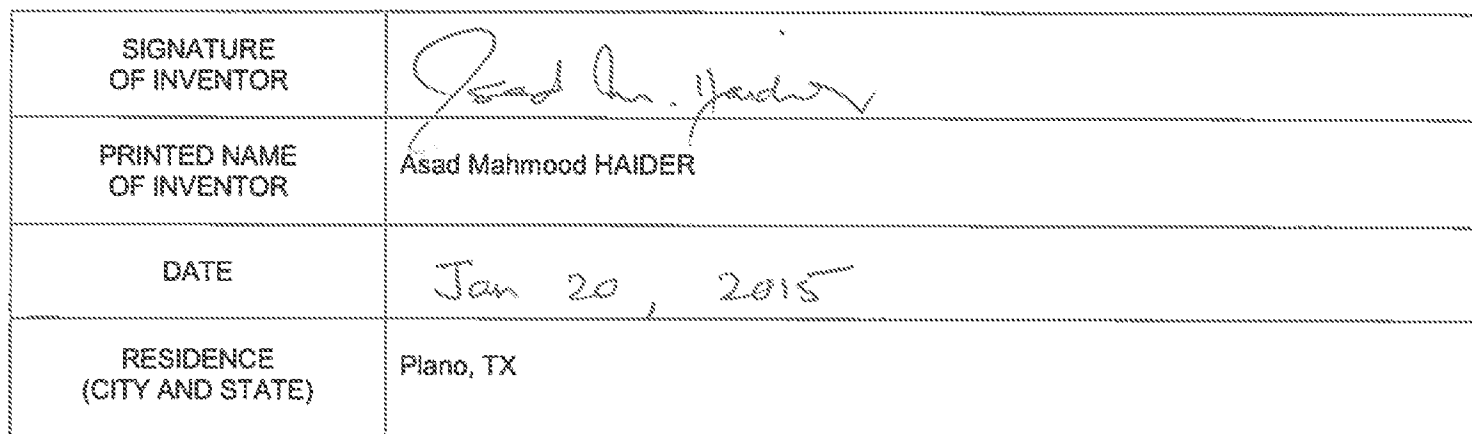 SIGNATURE
OF INVENTOR
Asad M. Haider
PRINTED NAME
OF INVENTOR
Asad Mahmood HAIDER
DATE
Jan 20, 2015
RESIDENCE
(CITY AND STATE)
Plano, TX